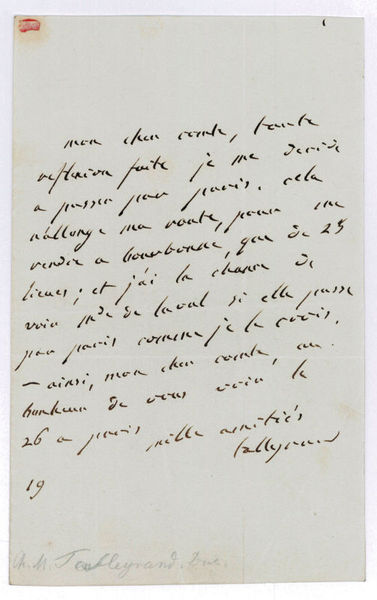 mon cher comte, toute
reflexion faite je me decide
a passer par paris. cela
n'allonge ma route, pour me
rendre a bourbonne, que de 25
lieues; et j'ai la chance de
voir Mde de laval si elle passe
par paris comme je le crois.
– ainsi, mon cher comte, au
bonheur de vous voir le
26 a paris mille amitiés
talleyrand
19
Ch. M. Talleyrand.